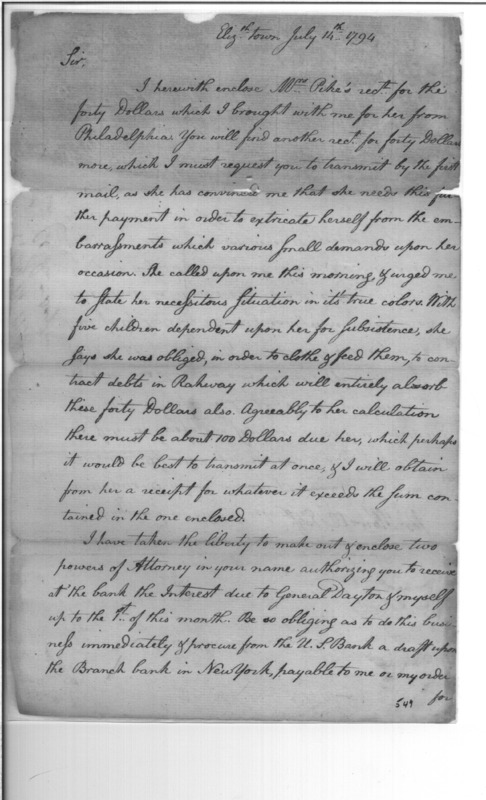 Eliz.th town July 14.th 1794
Sir,
I herewith enclose Mrs. Pike's rect. for the
forty Dollars which I brought with me for her from
Philadelphia. You will find another rect. for forty Dollars
more, which I must request you to transmit by the first
mail, as she has convinced me that she needs this fur-
ther payment in order to extricate herself from the em-
barrassments which various small demands upon her
occasion. She called upon me this morning, & urged me
to state her necessitous situation in it's true colors. With
five children dependent upon her for subsistence, she
says she was obliged, in order to clothe & feed them, to con-
tract debts in Rahway which will entirely absorb
these forty Dollars also. Agreeably to her calculation
there must be about 100 Dollars due her, which perhaps
it would be best to transmit at once, & I will obtain
from her a receipt for whatever it exceeds the sum con-
tained in the one enclosed.
I have taken the liberty to make out & enclose two
powers of Attorney in your name authorizing you to receive
at the bank the Interest due to General Dayton & myself
up to the 1st. of this month. Be so obliging as to do this busi-
ness immediately & procure from the U. S. Bank a draft upon
the Branch bank in New York, payable to me or my order
for
549